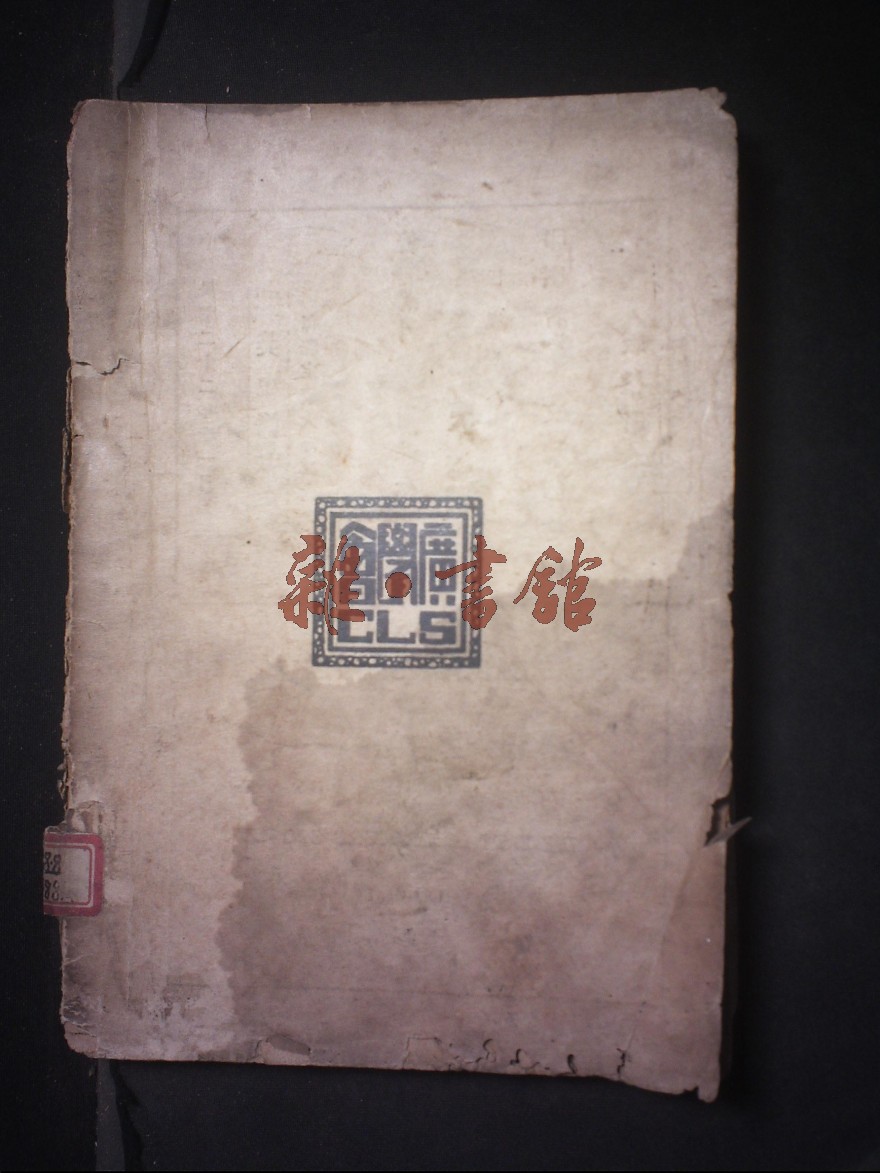 廣學會
CLS
雜·書館